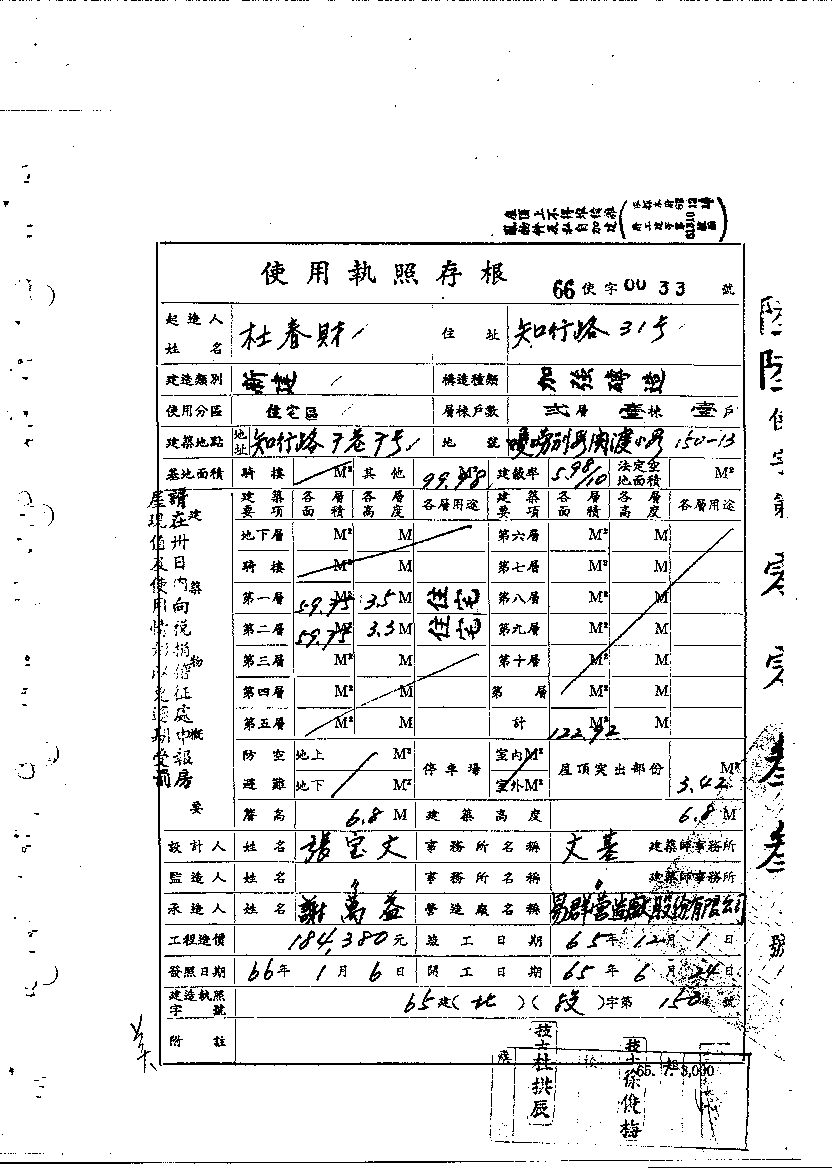 屋頂上不得擅搭雜
亂物料及私自加造
使用執照存根
66使字00 33 號
起造人姓名 杜春財 住址 知行路31号
建造類別 新建 構造種類 加強磚造
使用分區 住宅區 層棟戶數 弍層 壹棟 壹戶
建築地點 地址 知行路 地號 嗄嘮別段關渡小段 150-13
基地面積 騎樓 M² 其他 99.98 M² 建蔽率 5.98/10 法定空地面積 M²
建築要項 各層面積 各層高度 各層用途 建築要項 各層面積 各層高度 各層用途
地下層 M² M 第六層 M² M
騎樓 M² M 第七層 M² M
第一層 59.75 M² 3.5 M 住宅 第八層 M² M
第二層 59.75 M² 3.3 M 住宅 第九層 M² M
第三層 M² M 第十層 M² M
第四層 M² M 第 層 M² M
第五層 M² M 計 122.92 M² M
防空避難 地上 M² 停車場 室內M² 屋頂突出部份 3.42 M²
地下 M² 室外M²
簷高 6.8 M 建築高度 6.8 M
建築物概要
請在卅日內向稅捐稽征處申報房
屋現值及使用情形以免逾期受罰
設計人 姓名 張宝文 事務所名稱 文基 建築師事務所
監造人 姓名 〃 事務所名稱 〃 建築師事務所
承造人 姓名 謝萬益 營造廠名稱 易群營造廠股份有限公司
工程造價 184,380元 竣工日期 65年12月1日
發照日期 66年1月6日 開工日期 65年6月24日
建造執照字號 65建(北)(投)字第150號
附註
陸陸使字第零零叁叁號
技士杜拱辰
技士徐俊梅
65. 7. 3,000